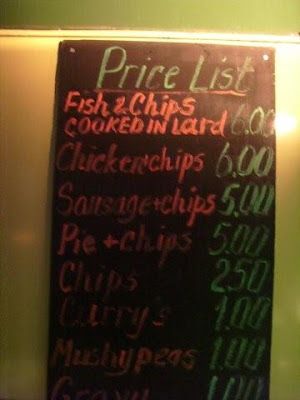 Price List
FISH & CHIPS
COOKED IN Lard 6.00
Chicken+chips 6.00
Sausage+chips 5.00
Pie + Chips 5.00
Chips 2.50
Curry's 1.00
Mushy peas 1.00
Gravy 1.00